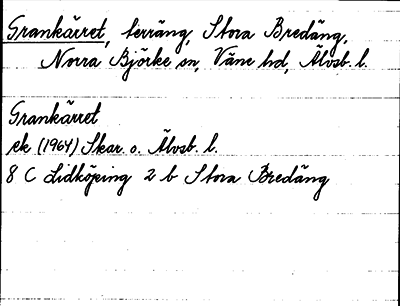 Grankärret, terräng, Stora Bredäng,
Norra Björke sn, Väne hd, Älvsb. l.
Grankärret
ek (1964) Skar. o. Älvsb. l.
8 C Lidköping 2 b Stora Bredäng